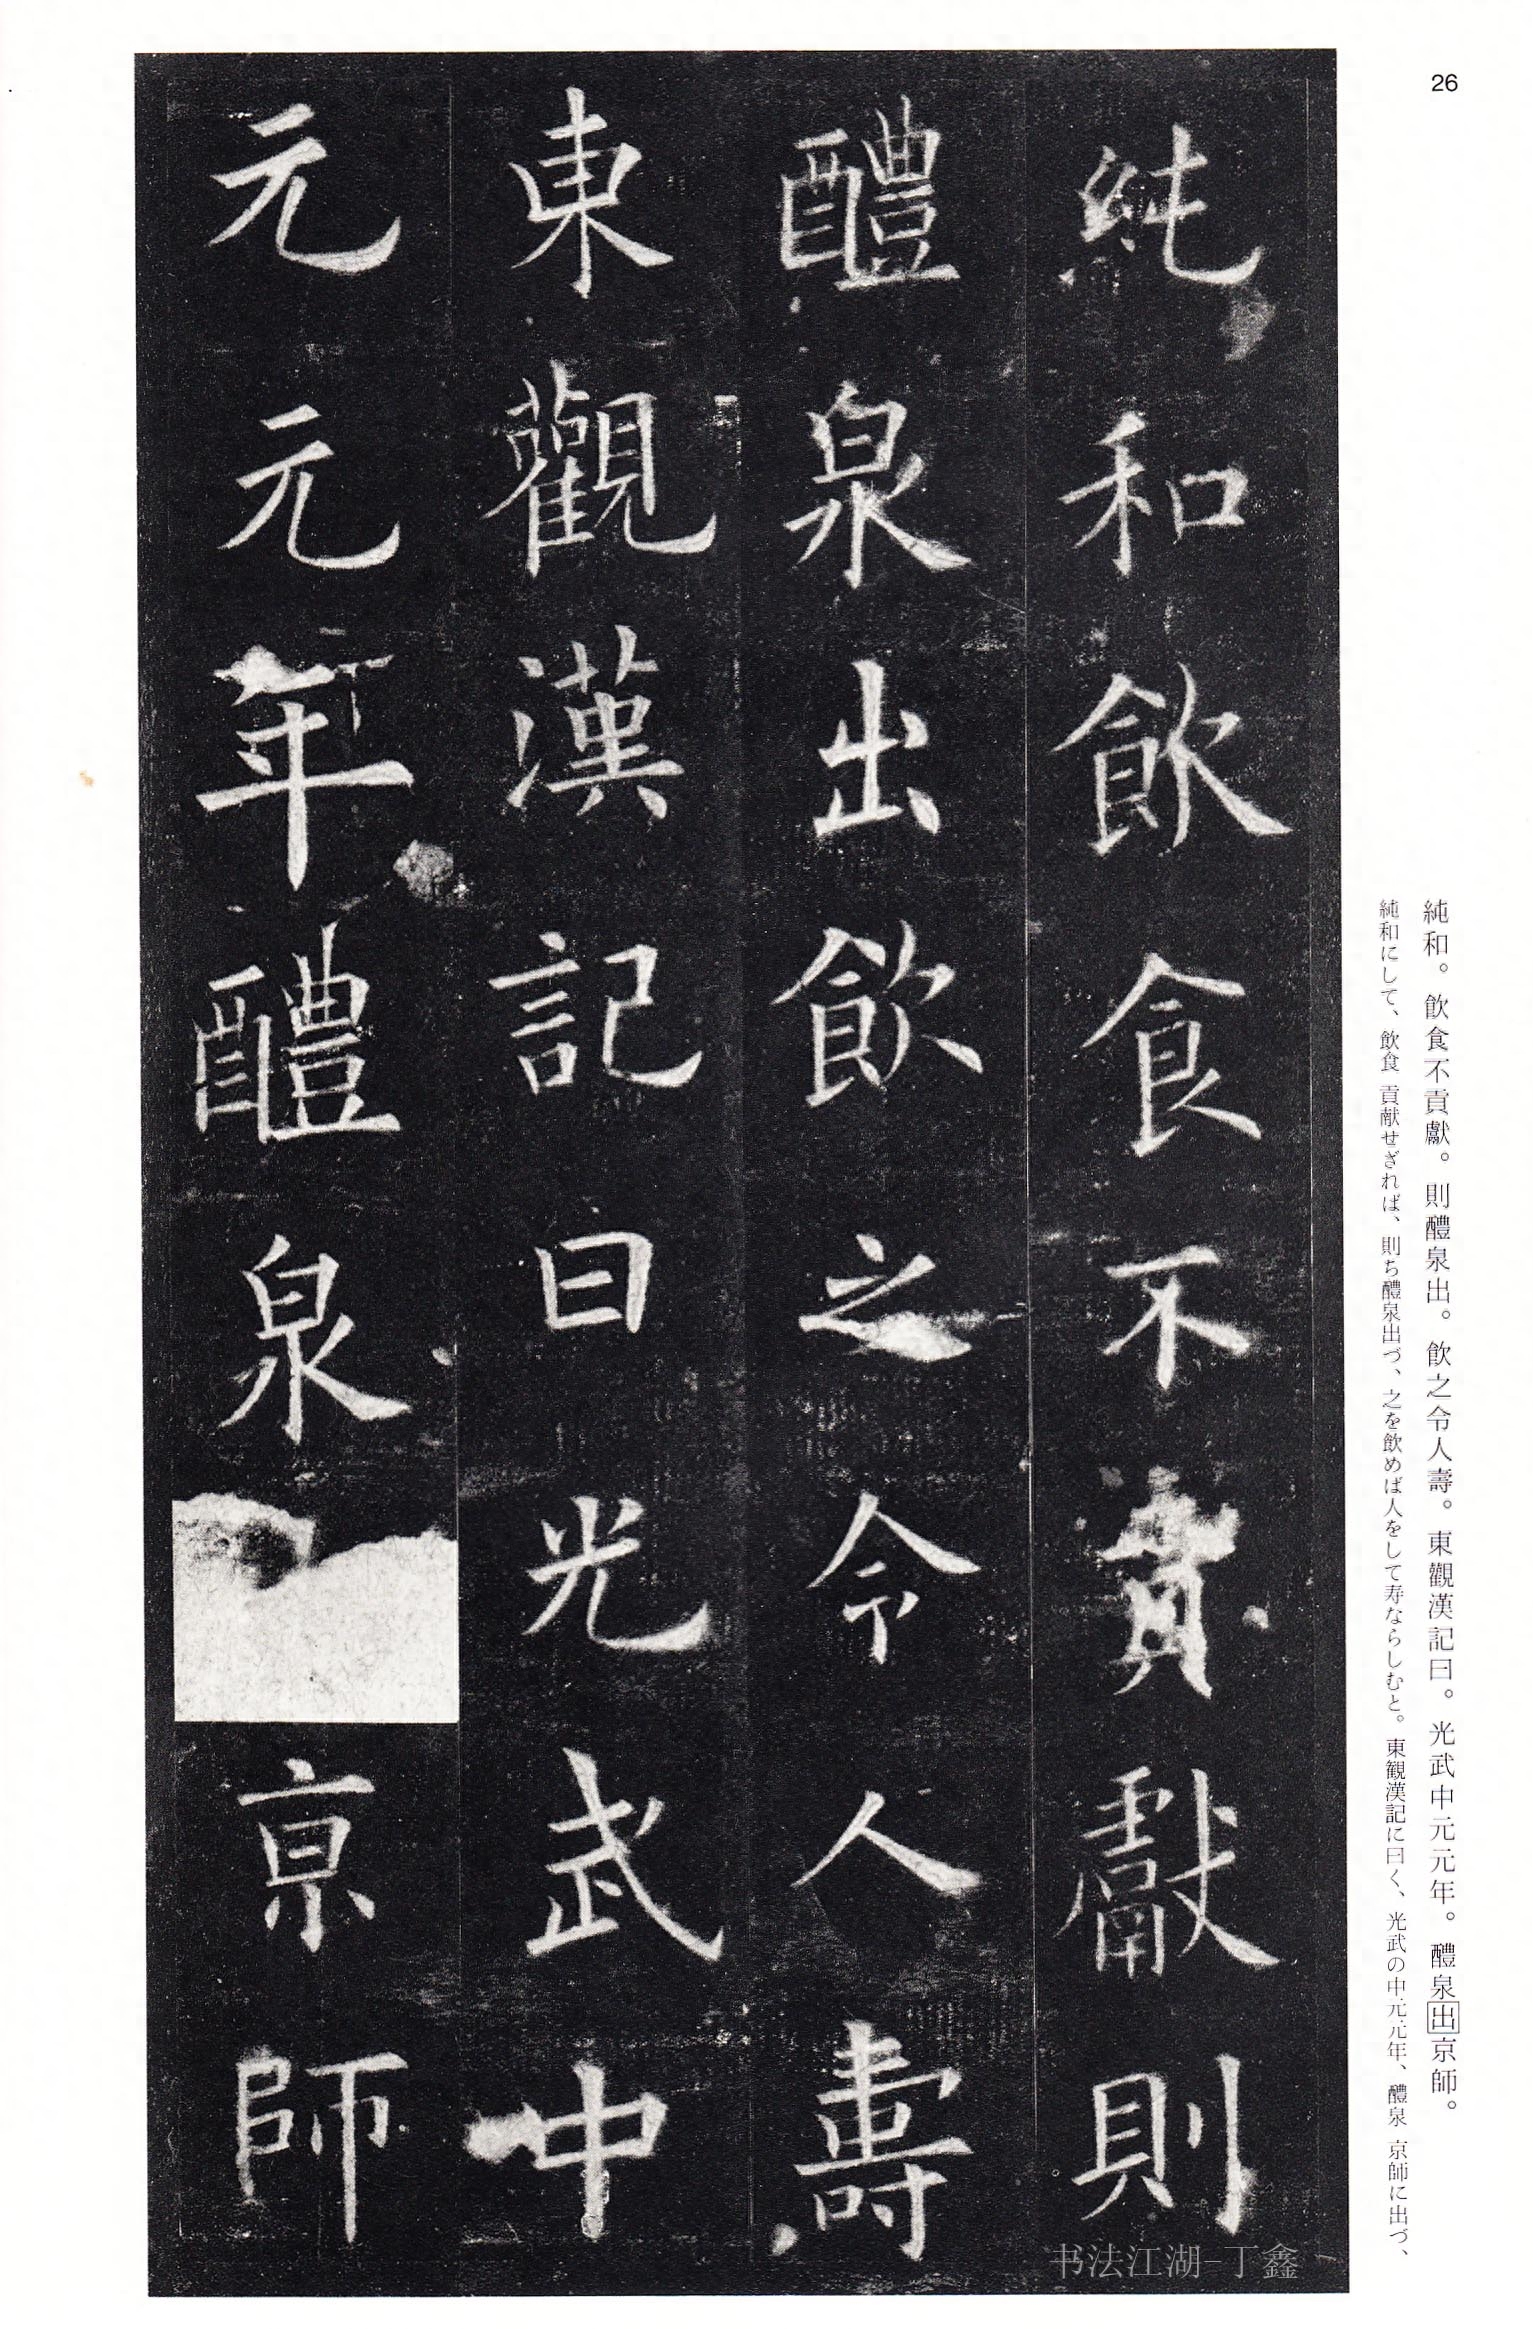 26
純和飲食不貢獻則
醴泉出飲之令人壽
東觀漢記曰光武中
元元年醴泉京師
純和。飲食不貢獻。則醴泉出。飲之令人壽。東觀漢記曰。光武中元元年。醴泉出京師。
純和にして、飲食 貢献せざれば、則ち醴泉出づ、之を飲めば人をして寿ならしむと。東観漢記に曰く、光武の中元元年、醴泉 京師に出づ、
书法江湖-丁鑫